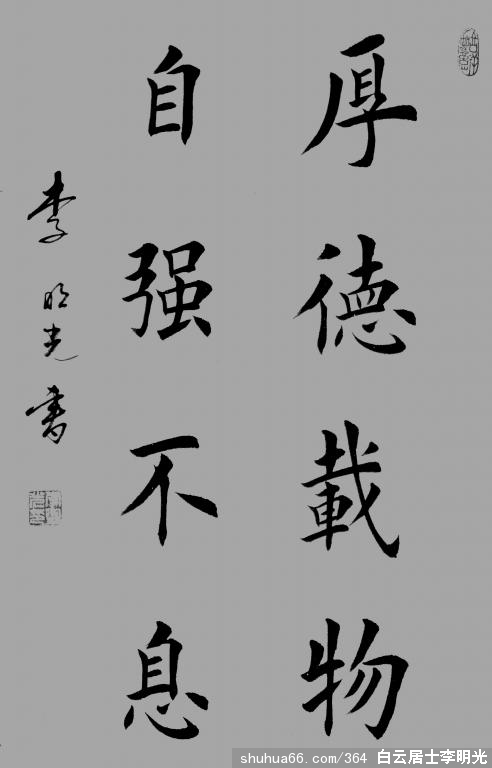 厚德載物
自强不息
李明光書
shuhua66.com/364 白云居士李明光